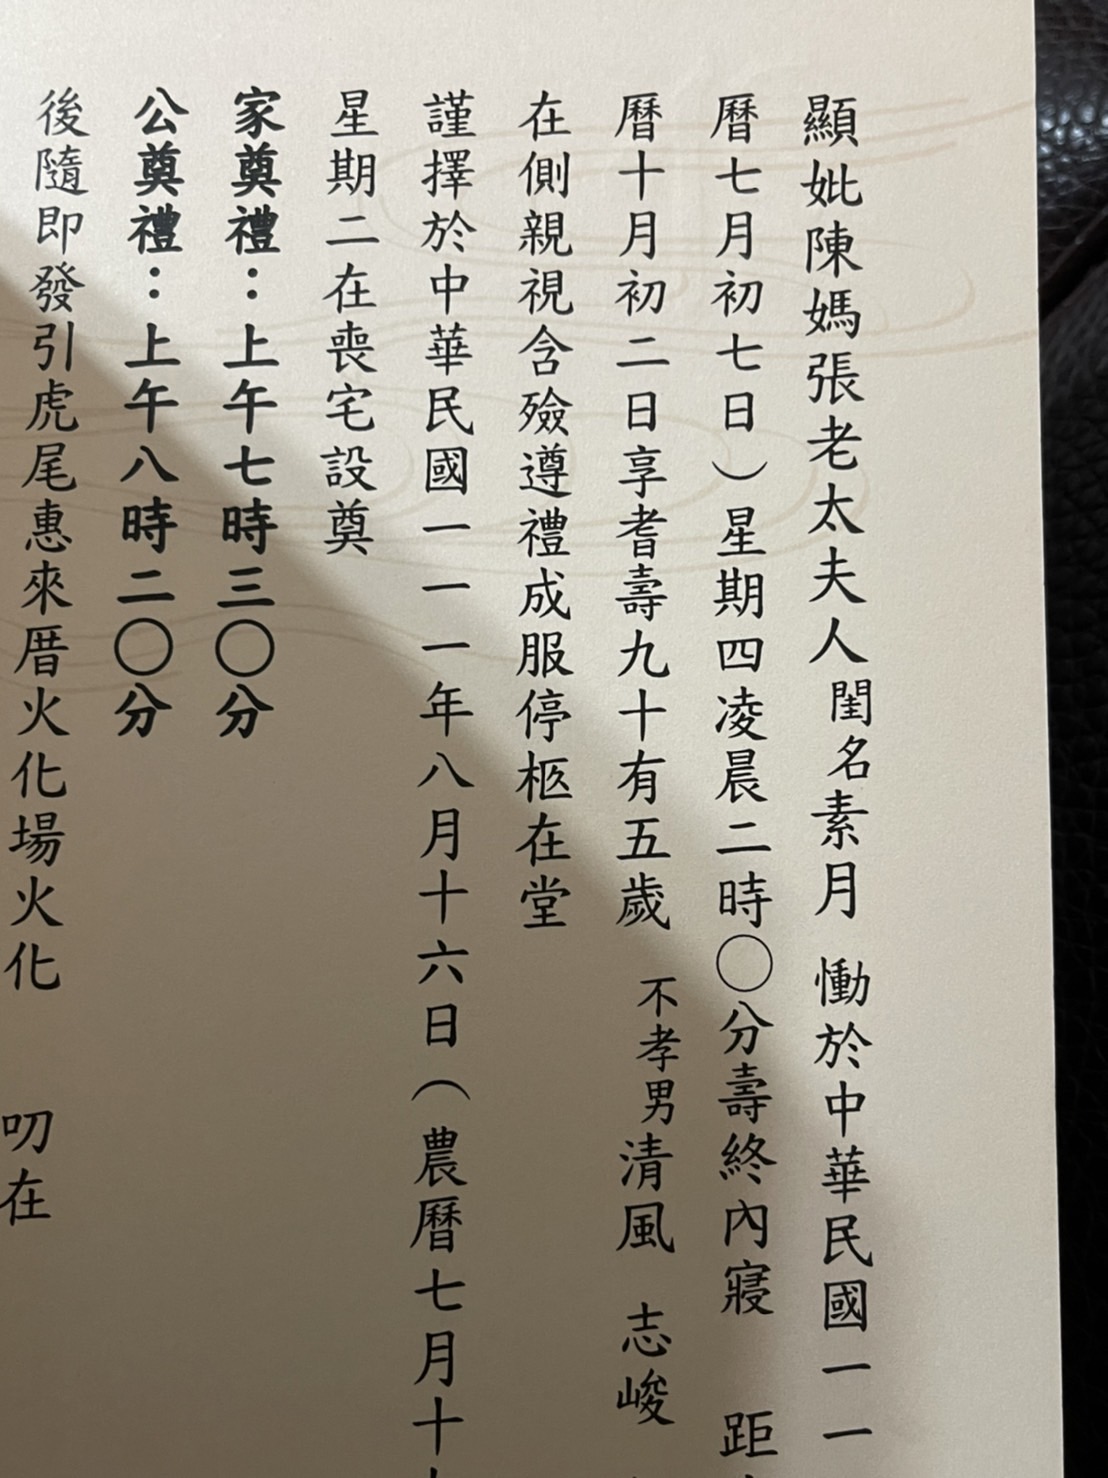 顯妣陳媽張老太夫人閨名素月 慟於中華民國一一
曆七月初七日）星期四凌晨二時〇分壽終內寢 距
曆十月初二日享耆壽九十有五歲 不孝男清風 志峻
在側親視含殮遵禮成服停柩在堂
謹擇於中華民國一一一年八月十六日（農曆七月十
星期二在喪宅設奠
家奠禮：上午七時三〇分
公奠禮：上午八時二〇分
後隨即發引虎尾惠來厝火化場火化 叨在